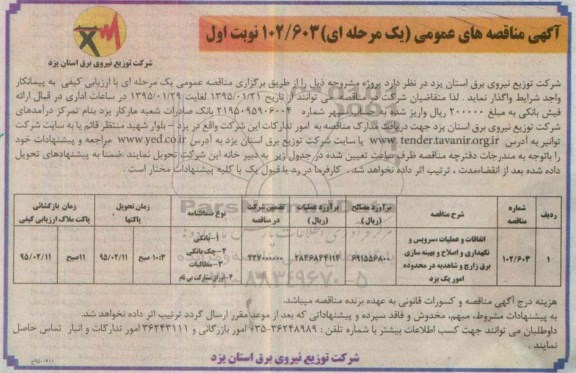 آگهی مناقصه های عمومی (یک مرحله ای) ۱۰۲/۶۰۳ نوبت اول
شرکت توزیع نیروی برق استان یزد
شرکت توزیع نیروی برق استان یزد در نظر دارد پروژه مشروحه ذیل را از طریق برگزاری مناقصه عمومی یک مرحله ای با ارزیابی کیفی به پیمانکار
واجد شرایط واگذار نماید . لذا متقاضیان شرکت در مناقصه می توانند از تاریخ ۱۳۹۵/۰۱/۲۱ لغایت ۱۳۹۵/۰۱/۲۹ در ساعات اداری در قبال ارائه
فیش بانکی به مبلغ ۲۰۰۰۰۰ ریال واریز شده به حساب سپهر شماره ۰۱۰۱۹۵۰۹۵۹۰۶۰۰۴ بانک صادرات شعبه مارکار یزد بنام تمرکز درآمدهای
شرکت توزیع نیروی برق استان یزد جهت دریافت مدارک مناقصه به امور تدارکات این شرکت واقع در یزد – بلوار شهید منتظر قائم یا به سایت شرکت
توانیر به آدرس www.tender.tavanir.org.ir یا سایت شرکت توزیع برق استان یزد به آدرس www.yed.co.ir مراجعه و پیشنهادات خود
را باتوجه به مندرجات دفترچه مناقصه ظرف ساعت تعیین شده در جدول زیر به دبیر خانه این شرکت تحویل نمایند .ضمنا به پیشنهادهای تحویل
داده شده بعد از انقضاءمدت ، ترتیب اثر داده نخواهد شد. . کارفرما در رد یا قبول یک یا کلیه پیشنهادات مختار است .
ردیف شماره مناقصه شرح مناقصه برآورد مصالح (ریال) برآورد عملیات (ریال) تضمین شرکت در مناقصه نوع ضمانتنامه زمان تحویل پاکتها زمان بازگشائی پاکت ملاک ارزیابی کیفی
۱ ۱۰۲/۶۰۳ اتفاقات و عملیات ،سرویس و نگهداری و اصلاح و بهینه سازی برق زارچ و شاهدیه در محدوده امور یک یزد ۶۹۱۵۵۶۸۰۰ ۲۸۴۶۸۴۴۱۱۴ ۲۲۷۰۰۰۰۰۰ ۱-بانکی ۲-چک بانکی ۳-مطالبات ۴-اوراق مشارکت بی نام ۱۰:۳۰ صبح ۹۵/۰۲/۱۱ ۱۱صبح ۹۵/۰۲/۱۱
هزینه درج آگهی مناقصه و کسورات قانونی به عهده برنده مناقصه میباشد.
به پیشنهادات مشروط، مبهم، مخدوش و فاقد سپرده و پیشنهاداتی که بعد از موعد مقرر ارسال گردد ترتیب اثر داده نخواهد شد.
داوطلبان می توانند جهت کسب اطلاعات بیشتر با شماره تلفن : ۳۶۲۴۸۹۸۹-۰۳۵ امور بازرگانی و ۳۶۲۴۳۱۱۱ امور تدارکات و انبار تماس حاصل
نمایند .
شرکت توزیع نیروی برق استان یزد